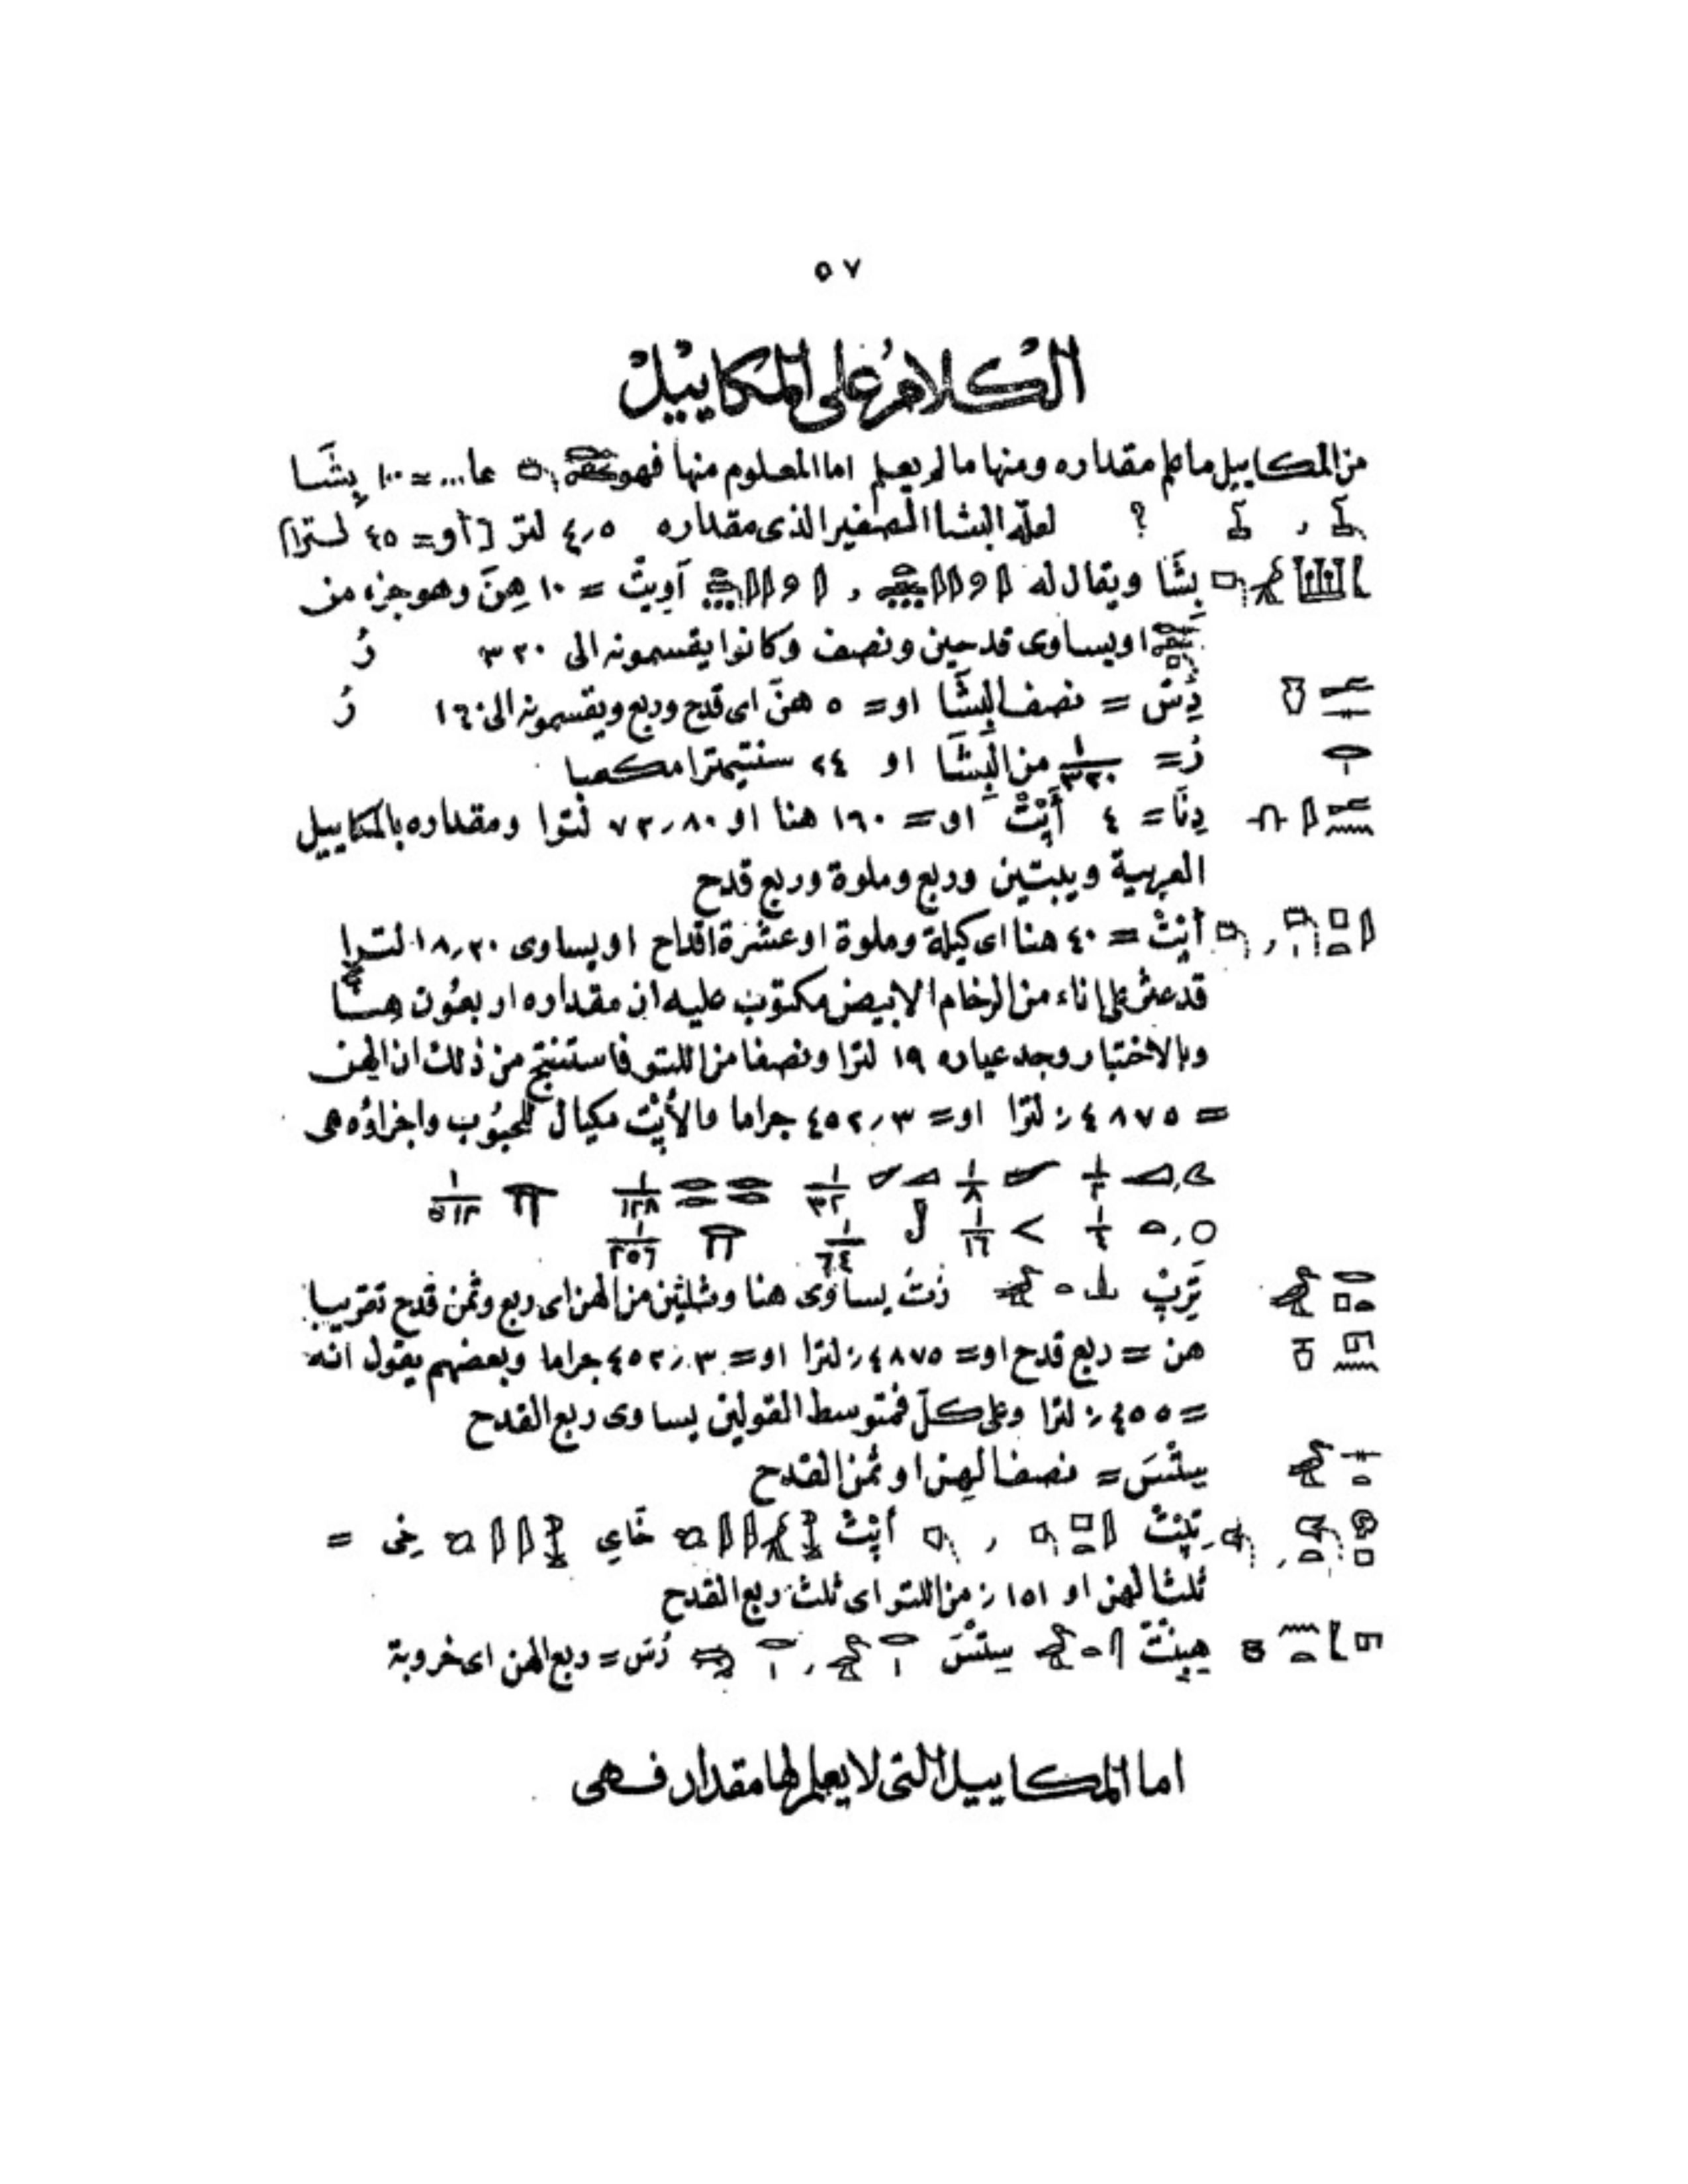 ٥٧
الكلام على المكاييل
من المكاييل ما علم مقداره ومنها ما لم يعلم اما المعلوم منها فهو عا... = ١٠٠ بِشَا
؟ لعلّه البشا الصغير الذى مقداره ٤٫٥ لتر [أو = ٤٥ لترا]
بِشَا ويقال له آوِيتْ = ١٠ هِنَ وهو جزء من
او يساوى قدحين ونصف وكانوا يقسمونه الى ٣٢٠ رُ
دِسْ = نصف البِشَا او = ٥ هنّ اى قدح وربع ويقسمونه الى ١٦٠ رُ
رُ = ١/٣٢٠ من البِشَا او ٢٤ سنتيمترا مكعبا
دِنَا = ٤ أَپْتْ او = ١٦٠ هنا او ٧٢٫٨٠ لترا ومقداره بالمكاييل
العربية ويبتين وربع وملوة وربع قدح
أپْتْ = ٤٠ هنا اى كيلة وملوة او عشرة اقداح او يساوى ١٨٫٢٠ لترا
قد عثر على اناء من الرخام الابيض مكتوب عليه ان مقداره اربعون هِنًّا
وبالاختبار وجد عياره ١٩ لترا ونصفا من اللتر فاستنتج من ذلك ان الهن
= ٤٨٧٥ر٠ لترا او = ٤٥٢٫٣ جراما والأپْتْ مكيال للحبوب واجزاؤه هى
١/٢ ١/٨ ١/٣٢ ١/١٢٨ ١/٥١٢
١/٤ ١/١٦ ١/٦٤ ١/٢٥٦
تَرِپْ رُتْ يساوى هنا وثلثين من الهن اى ربع وثمن قدح تقريبا
هن = ربع قدح او = ٤٨٧٥ر٠ لترا او = ٤٥٢٫٣ جراما وبعضهم يقول انه
= ٤٥٥ر٠ لترا وعلى كلّ فمتوسط القولين يساوى ربع القدح
سِتْسَ = نصف الهن او ثمن القدح
تِپْتْ أپْتْ خَاىِ خِى =
ثلث الهن او ١٥١ر٠ من اللتر اى ثلث ربع القدح
هِبِنْتْ سِتْسَ رُسَ = ربع الهن اى خروبة
اما المكاييل التى لا يعلم لها مقدار فهى